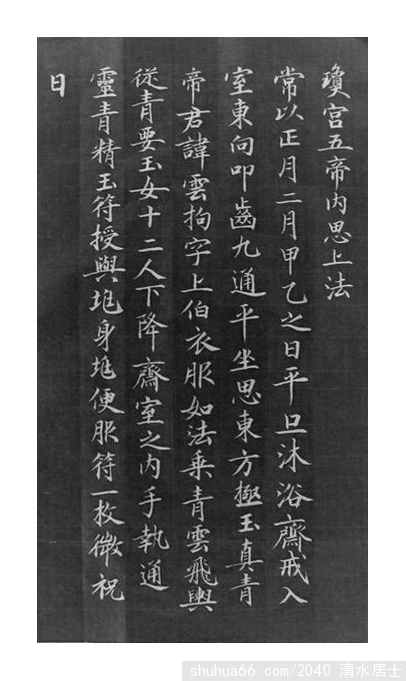 瓊宮五帝内思上法
常以正月二月甲乙之日平旦沐浴齋戒入
室東向叩齒九通平坐思東方極玉真青
帝君諱雲拘字上伯衣服如法乘青雲飛輿
從青要玉女十二人下降齋室之内手執通
靈青精玉符授與兆身兆便服符一枚微祝
曰
shuhua66.com/2040 清水居士